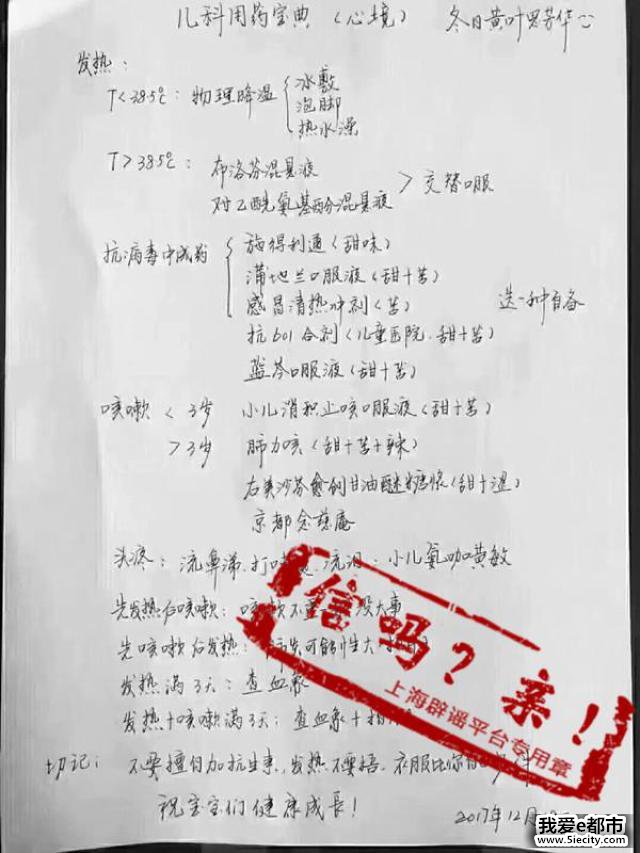 儿科用药宝典（心境） 冬日黄叶
发热：
T<38.5℃：物理降温 冰敷
泡脚
热水澡
T>38.5℃：布洛芬混悬液
对乙酰氨基酚混悬液 > 交替口服
抗病毒中成药 施得利通（甜味）
蒲地兰口服液（甜+苦）
感冒清热冲剂（苦） 选一种自备
抗601合剂（儿童医院.甜+苦）
蓝芩口服液（甜+苦）
咳嗽 < 3岁 小儿消积止咳口服液（甜+苦）
>3岁 肺力咳（甜+苦+辣）
右美沙芬愈创甘油醚糖浆（甜+温）
京都念慈庵
头疼：流鼻涕.打 流泪：小儿氨咖黄敏
先发热后咳嗽：咳嗽不 没大事
先咳嗽后发热： 可能性大
发热满3天：查血象
发热+咳嗽满3天：查血象+
切记：不要擅自加抗生素，发热不要捂、衣服比你
祝宝宝们健康成长！
2017年12月
信吗？亲！
上海辟谣平台专用章
我爱e都市
www.5iecity.com